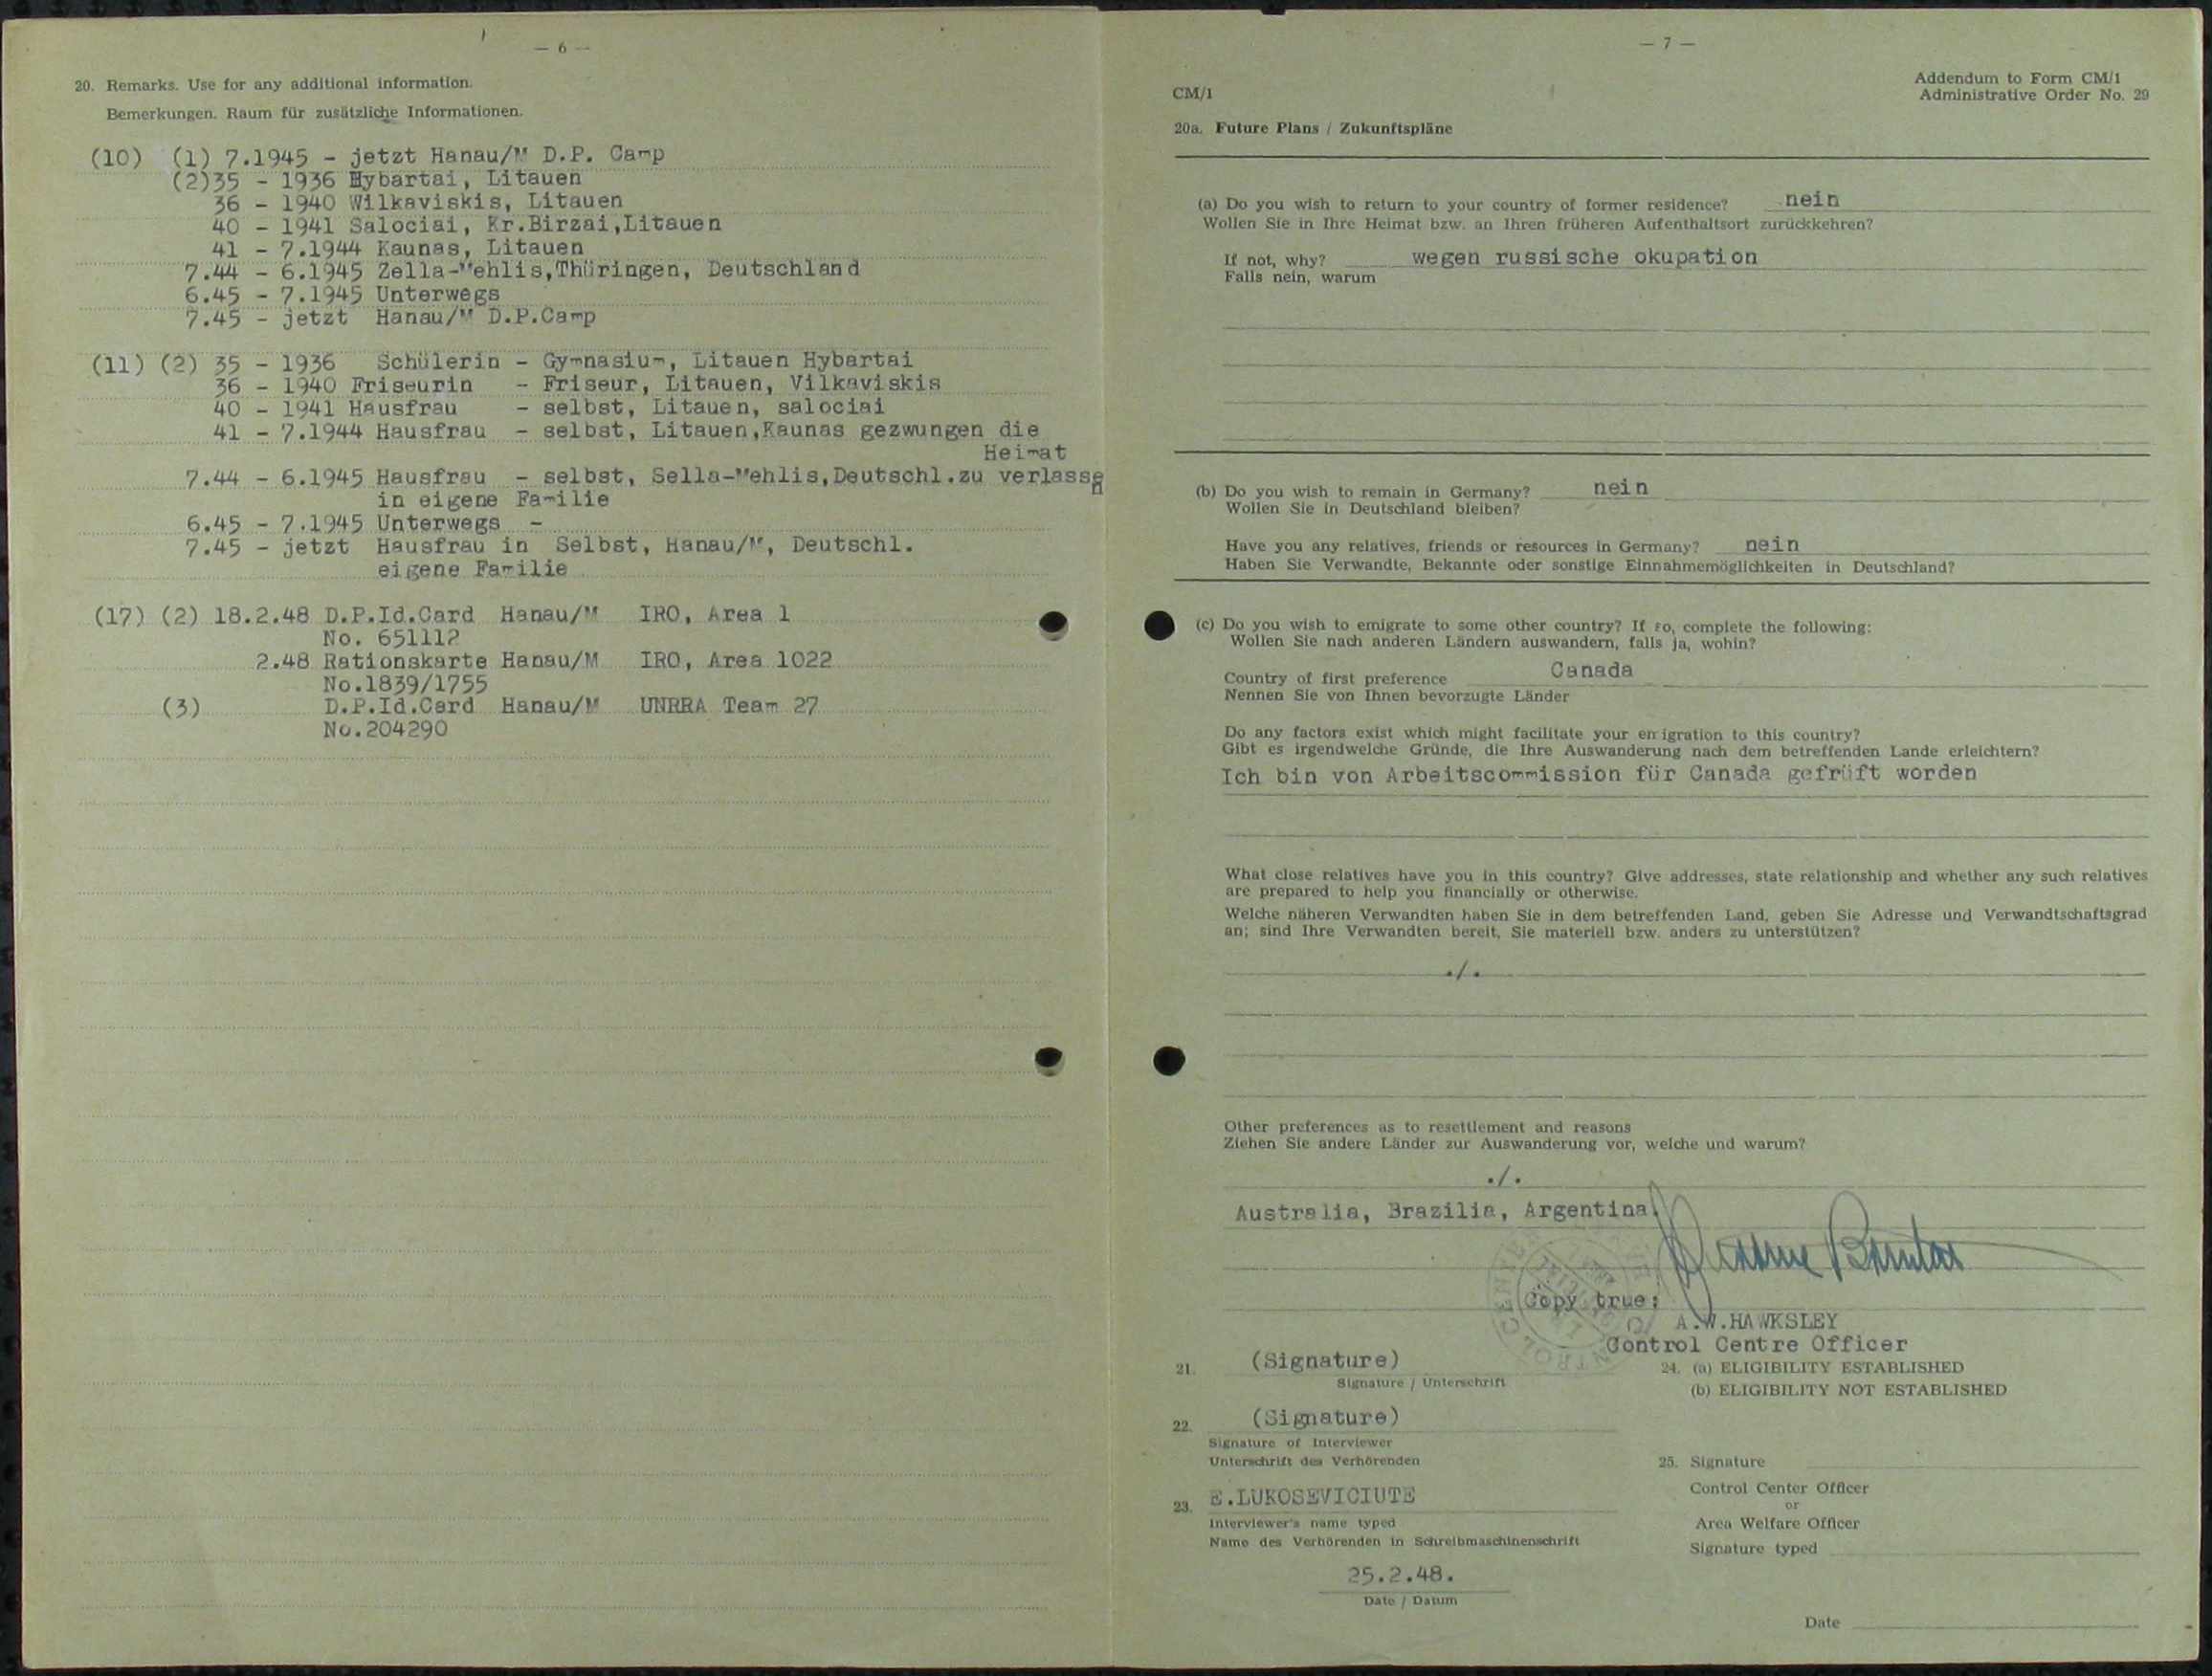 — 6 —
20. Remarks. Use for any additional information.
Bemerkungen. Raum für zusätzliche Informationen.
(10) (1) 7.1945 - jetzt Hanau/M D.P. Camp
(2)35 - 1936 Hybartai, Litauen
36 - 1940 Wilkaviskis, Litauen
40 - 1941 Salociai, Kr.Birzai,Litauen
41 - 7.1944 Kaunas, Litauen
7.44 - 6.1945 Zella-Mehlis,Thüringen, Deutschland
6.45 - 7.1945 Unterwegs
7.45 - jetzt Hanau/M D.P.Camp
(11) (2) 35 - 1936 Schülerin - Gymnasium, Litauen Hybartai
36 - 1940 Friseurin - Friseur, Litauen, Vilkaviskis
40 - 1941 Hausfrau - selbst, Litauen, salociai
41 - 7.1944 Hausfrau - selbst, Litauen,Kaunas gezwungen die
Heimat
7.44 - 6.1945 Hausfrau - selbst, Sella-Mehlis,Deutschl.zu verlassen
in eigene Familie
6.45 - 7.1945 Unterwegs -
7.45 - jetzt Hausfrau in Selbst, Hanau/M, Deutschl.
eigene Familie
(17) (2) 18.2.48 D.P.Id.Card Hanau/M IRO, Area 1
No. 651112
2.48 Rationskarte Hanau/M IRO, Area 1022
No.1839/1755
(3) D.P.Id.Card Hanau/M UNRRA Team 27
No.204290
— 7 —
CM/1
Addendum to Form CM/1
Administrative Order No. 29
20a. Future Plans / Zukunftspläne
(a) Do you wish to return to your country of former residence? nein
Wollen Sie in Ihre Heimat bzw. an Ihren früheren Aufenthaltsort zurückkehren?
If not, why? wegen russische okupation
Falls nein, warum
(b) Do you wish to remain in Germany? nein
Wollen Sie in Deutschland bleiben?
Have you any relatives, friends or resources in Germany? nein
Haben Sie Verwandte, Bekannte oder sonstige Einnahmemöglichkeiten in Deutschland?
(c) Do you wish to emigrate to some other country? If so, complete the following:
Wollen Sie nach anderen Ländern auswandern, falls ja, wohin?
Country of first preference Canada
Nennen Sie von Ihnen bevorzugte Länder
Do any factors exist which might facilitate your emigration to this country?
Gibt es irgendwelche Gründe, die Ihre Auswanderung nach dem betreffenden Lande erleichtern?
Ich bin von Arbeitscommission für Canada gefrüft worden
What close relatives have you in this country? Give addresses, state relationship and whether any such relatives
are prepared to help you financially or otherwise.
Welche näheren Verwandten haben Sie in dem betreffenden Land, geben Sie Adresse und Verwandtschaftsgrad
an; sind Ihre Verwandten bereit, Sie materiell bzw. anders zu unterstützen?
./.
Other preferences as to resettlement and reasons
Ziehen Sie andere Länder zur Auswanderung vor, welche und warum?
./.
Australia, Brazilia, Argentina.
Copy true:
A.W.HAWKSLEY
Control Centre Officer
21. (Signature)
Signature / Unterschrift
24. (a) ELIGIBILITY ESTABLISHED
(b) ELIGIBILITY NOT ESTABLISHED
22. (Signature)
Signature of Interviewer
Unterschrift des Verhörenden
25. Signature
Control Center Officer
or
Area Welfare Officer
Signature typed
23. E.LUKOSEVICIUTE
Interviewer's name typed
Name des Verhörenden in Schreibmaschinenschrift
25.2.48.
Date / Datum
Date